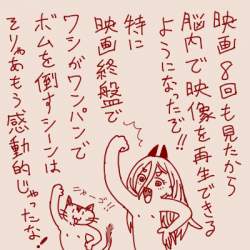 映画8回も見たから
脳内で映像を再生できる
ようになったぞ!!
特に
映画終盤で
ワシがワンパンで
ボムを倒すシーンは
そりゃあもう感動的じゃったな!